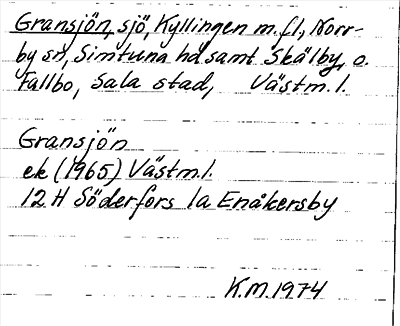 Gransjön, sjö, Kyllingen m.fl., Norr-
by sn, Simtuna hd samt Skälby, o.
Fallbo, Sala stad, Västm. l.
Gransjön
ek (1965) Västm. l.
12 H Söderfors 1a Enåkersby
K.M. 1974